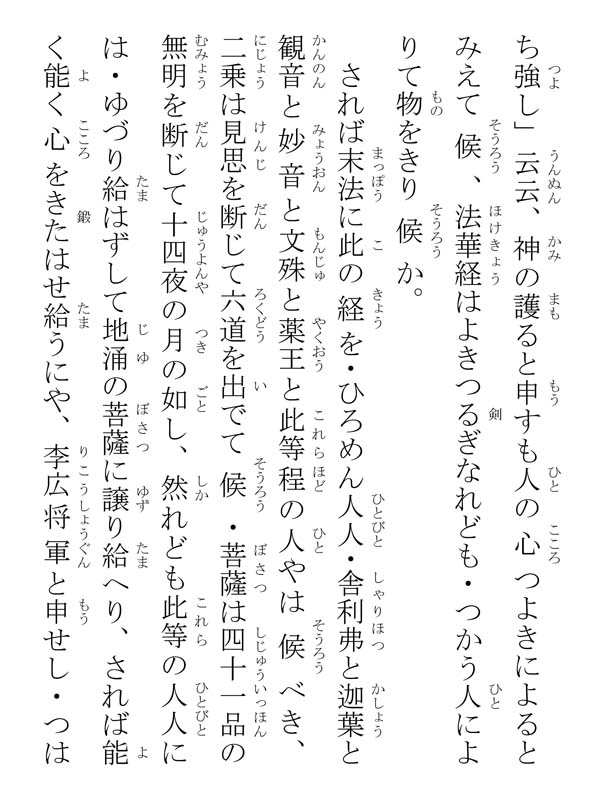 ち強し」云云、神の護ると申すも人の心つよきによると
みえて候、法華経はよきつるぎなれども・つかう人によ
りて物をきり候か。
されば末法に此の経を・ひろめん人人・舎利弗と迦葉と
観音と妙音と文殊と薬王と此等程の人やは候べき、
二乗は見思を断じて六道を出でて候・菩薩は四十一品の
無明を断じて十四夜の月の如し、然れども此等の人人に
は・ゆづり給はずして地涌の菩薩に譲り給へり、されば能
く能く心をきたはせ給うにや、李広将軍と申せし・つは